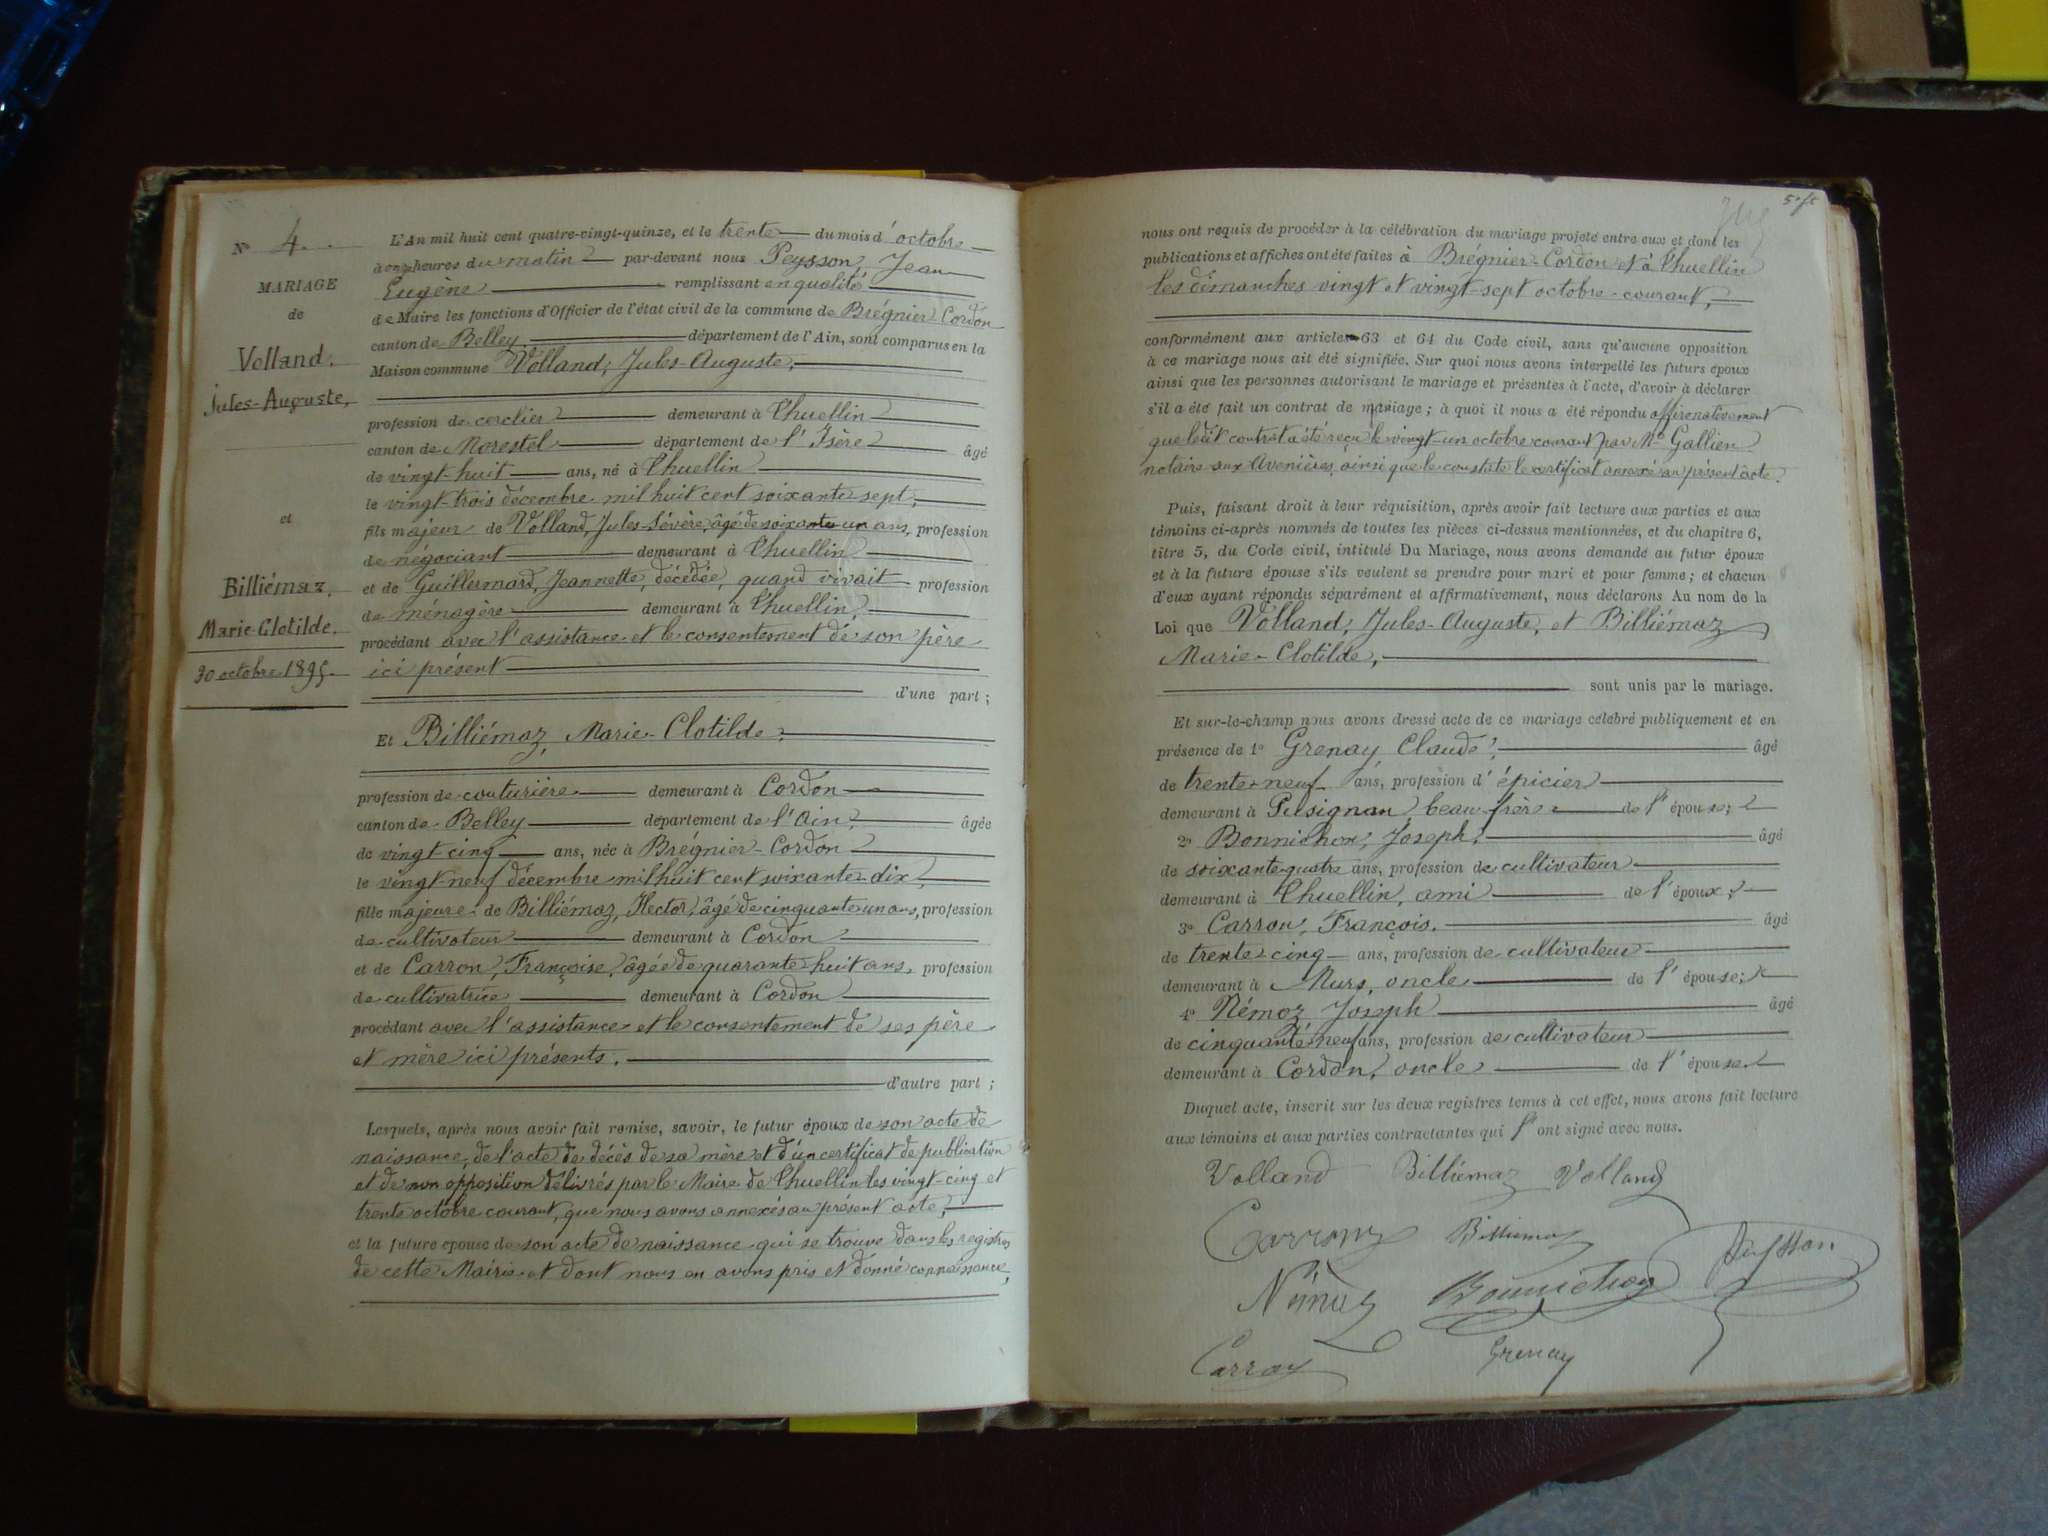 N° 4.
MARIAGE
de
Volland.
Jules-Auguste,
et
Billiémaz,
Marie-Clotilde.
30 octobre 1895.
L'An mil huit cent quatre-vingt-quinze, et le trente du mois d'octobre
à onze heures du matin par-devant nous Peysson, Jean
Eugène remplissant en qualité
de Maire les fonctions d'Officier de l'état civil de la commune de Brégnier-Cordon
canton de Belley, département de l'Ain, sont comparus en la
Maison commune Volland, Jules-Auguste,
profession de cerclier demeurant à Thuellin
canton de Morestel département de l'Isère âgé
de vingt-huit ans, né à Thuellin
le vingt-trois décembre mil huit cent soixante sept,
fils majeur de Volland, Jules-Sévère, âgé de soixante un ans, profession
de négociant demeurant à Thuellin
et de Guillermard, Jeannette, décédée, quand vivait profession
de ménagère demeurant à Thuellin,
procédant avec l'assistance et le consentement de son père
ici présent
d'une part;
Et Billiémaz, Marie-Clotilde,
profession de couturière demeurant à Cordon
canton de Belley département de l'Ain, âgée
de vingt-cinq ans, née à Brégnier-Cordon
le vingt-neuf décembre mil huit cent soixante-dix,
fille majeure de Billiémaz, Hector, âgé de cinquante un ans, profession
de cultivateur demeurant à Cordon
et de Carron, Françoise, âgée de quarante-huit ans, profession
de cultivatrice demeurant à Cordon
procédant avec l'assistance et le consentement de ses père
et mère ici présents.
d'autre part;
Lesquels, après nous avoir fait remise, savoir, le futur époux de son acte de
naissance, de l'acte de décès de sa mère et d'un certificat de publication
et de non opposition délivrés par le Maire de Thuellin les vingt-cinq et
trente octobre courant, que nous avons annexés au présent acte,
et la future épouse de son acte de naissance qui se trouve dans les registres
de cette Mairie et dont nous en avons pris et donné connaissance,
nous ont requis de procéder à la célébration du mariage projeté entre eux et dont les
publications et affiches ont été faites à Brégnier-Cordon et à Thuellin
les dimanches vingt et vingt-sept octobre courant,
conformément aux articles 63 et 64 du Code civil, sans qu'aucune opposition
à ce mariage nous ait été signifiée. Sur quoi nous avons interpellé les futurs époux
ainsi que les personnes autorisant le mariage et présentes à l'acte, d'avoir à déclarer
s'il a été fait un contrat de mariage; à quoi il nous a été répondu affirmativement
que ledit contrat a été reçu le vingt-un octobre courant par Me Gallien
notaire aux Avenières, ainsi que le constate le certificat annexé au présent acte.
Puis, faisant droit à leur réquisition, après avoir fait lecture aux parties et aux
témoins ci-après nommés de toutes les pièces ci-dessus mentionnées, et du chapitre 6,
titre 5, du Code civil, intitulé Du Mariage, nous avons demandé au futur époux
et à la future épouse s'ils veulent se prendre pour mari et pour femme; et chacun
d'eux ayant répondu séparément et affirmativement, nous déclarons Au nom de la
Loi que Volland, Jules-Auguste, et Billiémaz
Marie-Clotilde,
sont unis par le mariage.
Et sur-le-champ nous avons dressé acte de ce mariage célébré publiquement et en
présence de 1° Grenay Claude, âgé
de trente-neuf ans, profession d'épicier
demeurant à Pusignan, beau-frère de l'épouse;
2° Bonnichon, Joseph, âgé
de soixante-quatre ans, profession de cultivateur
demeurant à Thuellin, ami de l'époux;
3° Carron, François. âgé
de trente-cinq ans, profession de cultivateur
demeurant à Murs, oncle de l'épouse;
4° Némoz Joseph âgé
de cinquante-neuf ans, profession de cultivateur
demeurant à Cordon, oncle de l'épouse.
Duquel acte, inscrit sur les deux registres tenus à cet effet, nous avons fait lecture
aux témoins et aux parties contractantes qui l'ont signé avec nous.
Volland Billiémaz Volland
Carron Billiemaz Peysson
Némoz Bonnichon
Carron Grenay